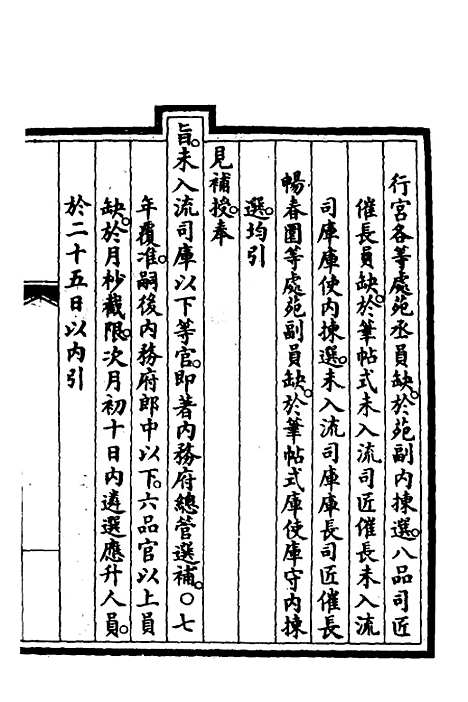 行宮各等處苑丞員缺。於苑副內揀選。八品司匠
催長員缺。於筆帖式未入流司匠催長未入流
司庫庫使內揀選。未入流司庫庫長司匠催長
暢春園等處苑副員缺。於筆帖式庫使庫守內揀
選。均引
見補授。奉
旨。未入流司庫以下等官。即著內務府總管選補。○七
年覆准。嗣後內務府郎中以下。六品官以上員
缺。於月杪截限。次月初十日內遴選應升人員。
於二十五日以內引